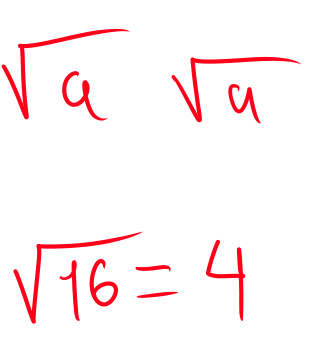 √a √a
√16 = 4